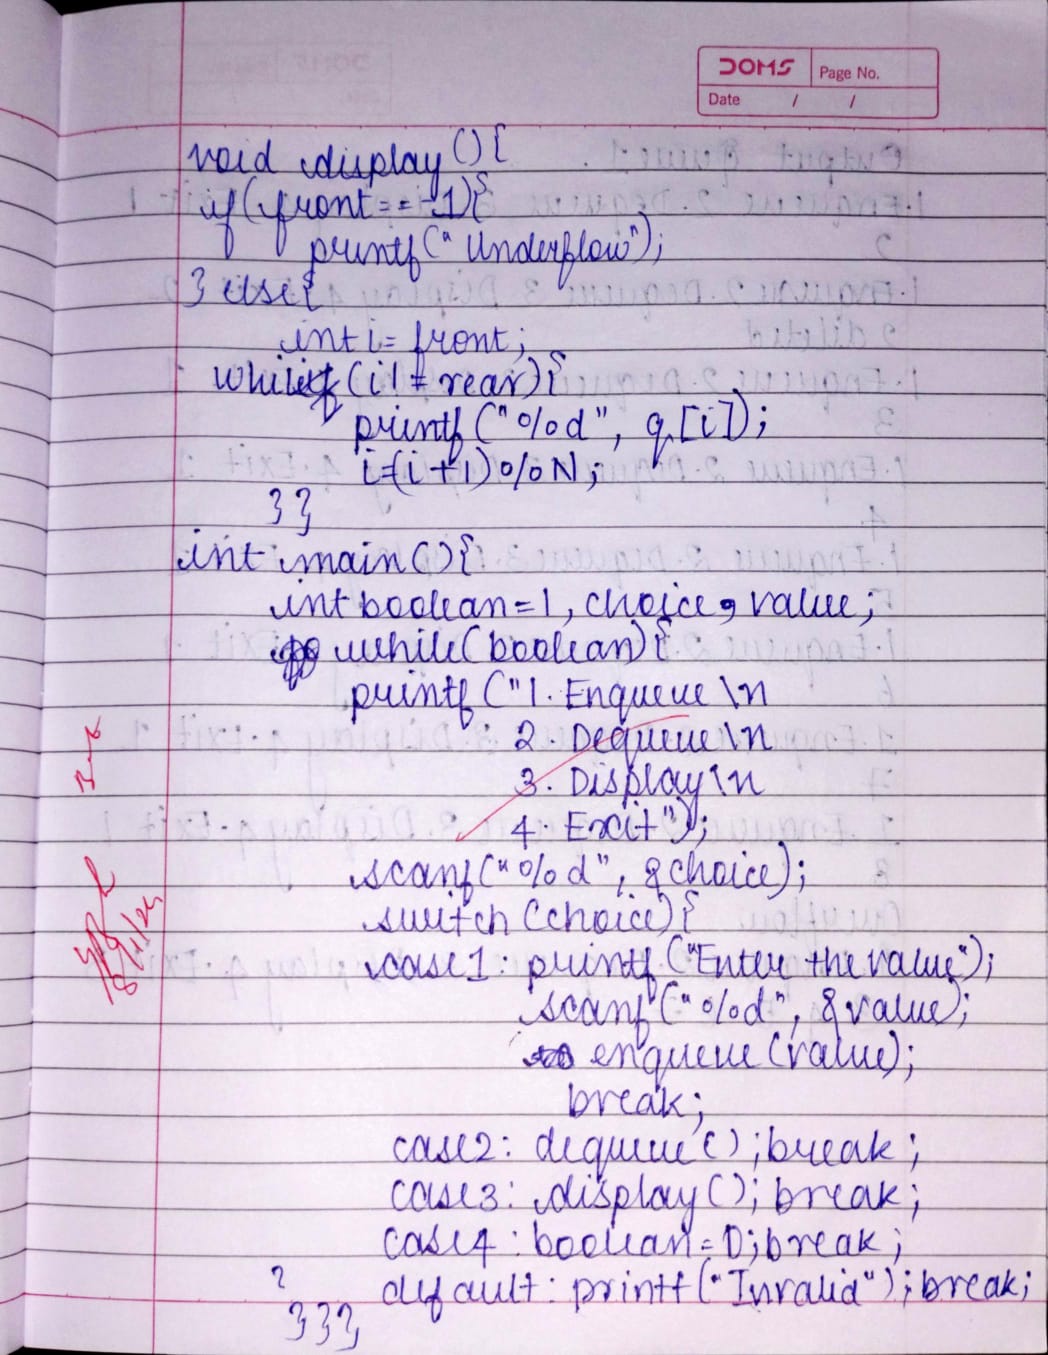 DOMS Page No.
Date / /
void display (){
if(front == -1){
printf(" Underflow");
} else{
int i = front;
while (i != rear){
printf("%d", q[i]);
i=(i+1)%N;
}}
int main(){
int boolean=1, choice, value;
while(boolean){
printf ("1. Enqueue \n
2. Dequeue \n
3. Display \n
4. Exit");
scanf("%d", &choice);
switch (choice){
case1: printf("Enter the value");
scanf("%d", &value);
enqueue(value);
break;
case2: dequeue(); break;
case3: display(); break;
case4: boolean=0; break;
default: printf("Invalid"); break;
}}}